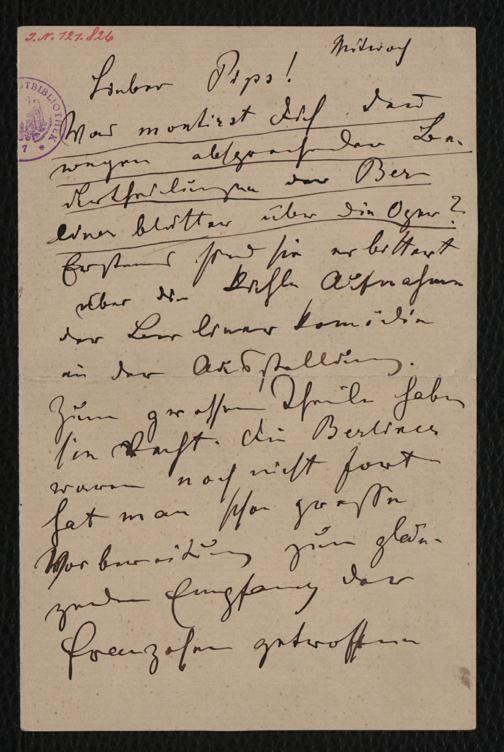 I.N. 121.826
Mittwoch
Lieber Pips!
Was montirst dich denn
wegen absprechender Be-
urtheilungen der Ber-
liner blätter über die Oper?
Erstens sind sie erbittert
über die kühle Aufnahme
der Berliner Komödie
in der Ausstellung.
Zum grossen Theile haben
sie Recht. Die Berliner
waren noch nicht fort
hat man schon grosse
Vorbereitung zum glän-
zenden Empfang der
Franzosen getroffen